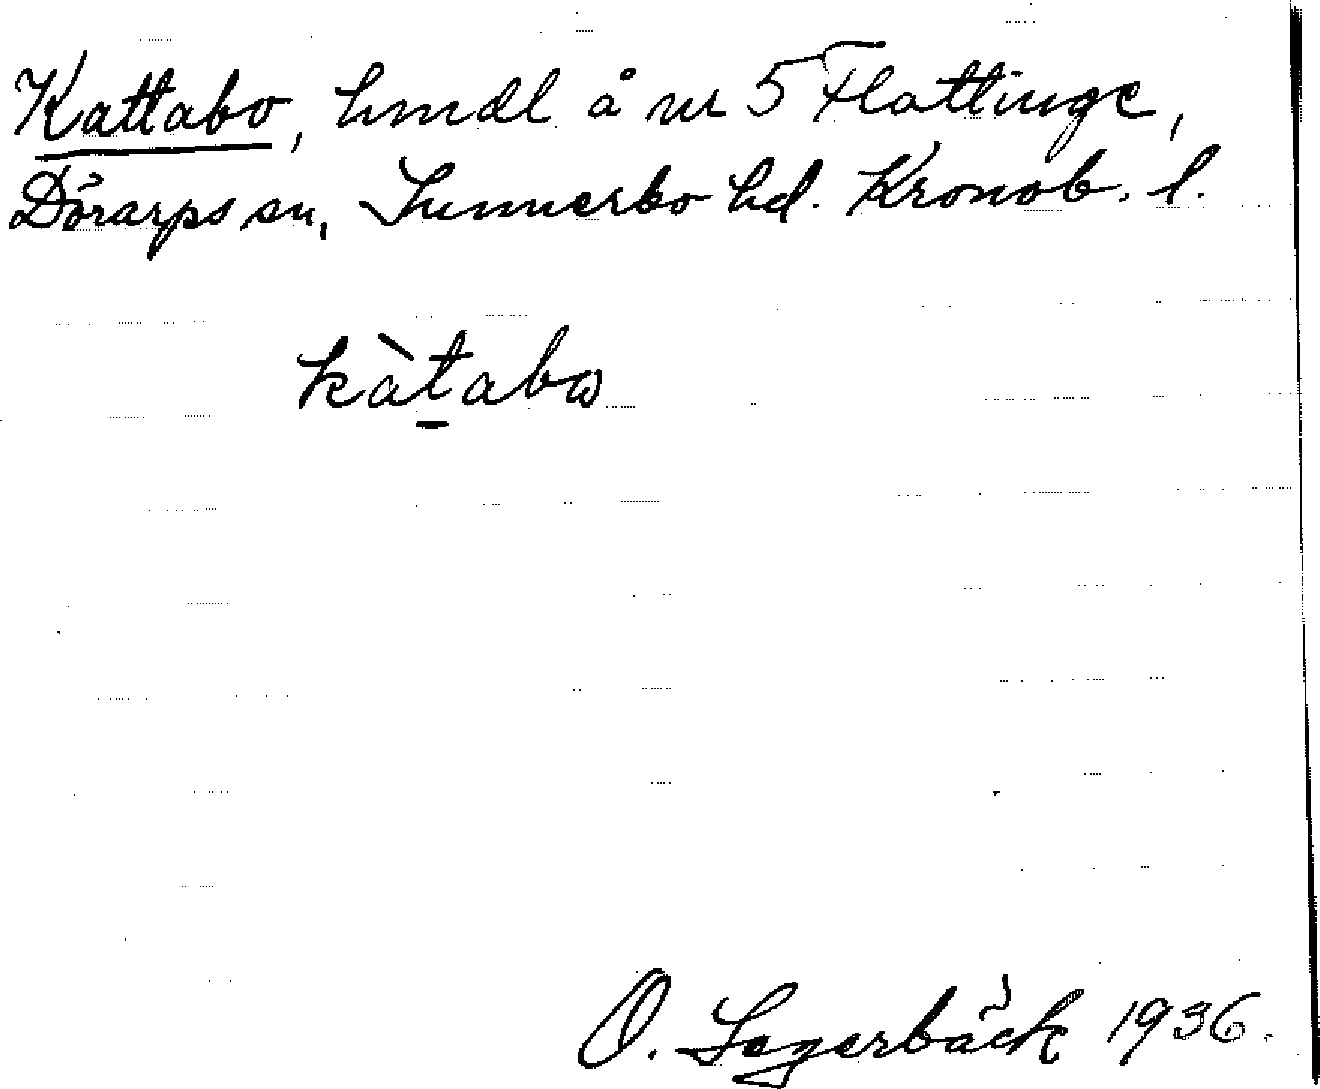 Kattabo, hmdl å nr 5 Flattinge,
Dörarps sn, Sunnerbo hd. Kronob. l.
kàt̲abω
O. Segerbäck 1936.